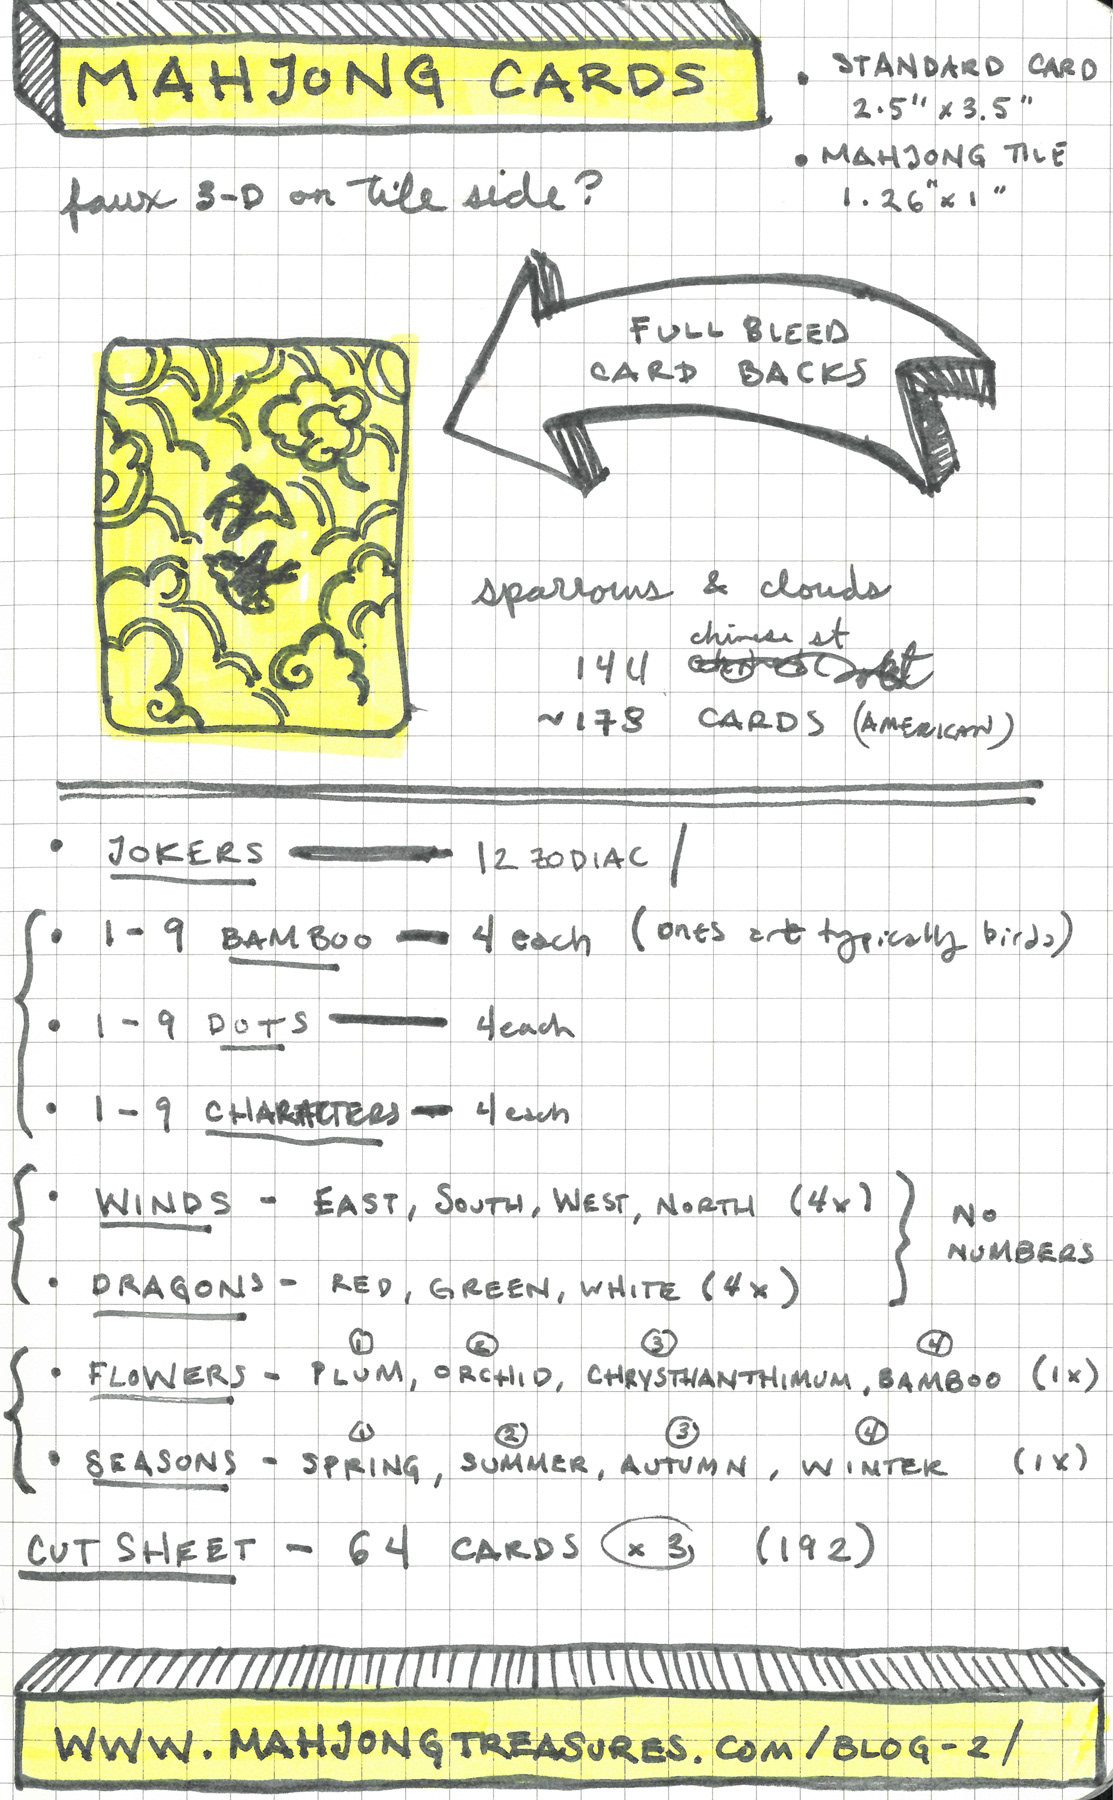 MAHJONG CARDS
• STANDARD CARD
2.5" x 3.5"
• MAHJONG TILE
1.26" x 1"
faux 3-D on tile side?
FULL BLEED
CARD BACKS
sparrows & clouds
chinese st
144
~178 CARDS (AMERICAN)
• JOKERS — 12 ZODIAC /
• 1-9 BAMBOO — 4 each (ones are typically birds)
• 1-9 DOTS — 4 each
• 1-9 CHARACTERS — 4 each
• WINDS - EAST, SOUTH, WEST, NORTH (4x)
• DRAGONS - RED, GREEN, WHITE (4x)
NO
NUMBERS
① ② ③ ④
• FLOWERS - PLUM, ORCHID, CHRYSTHANTHIMUM, BAMBOO (1x)
① ② ③ ④
• SEASONS - SPRING, SUMMER, AUTUMN, WINTER (1x)
CUT SHEET - 64 CARDS x 3 (192)
WWW.MAHJONGTREASURES.COM/BLOG-2/